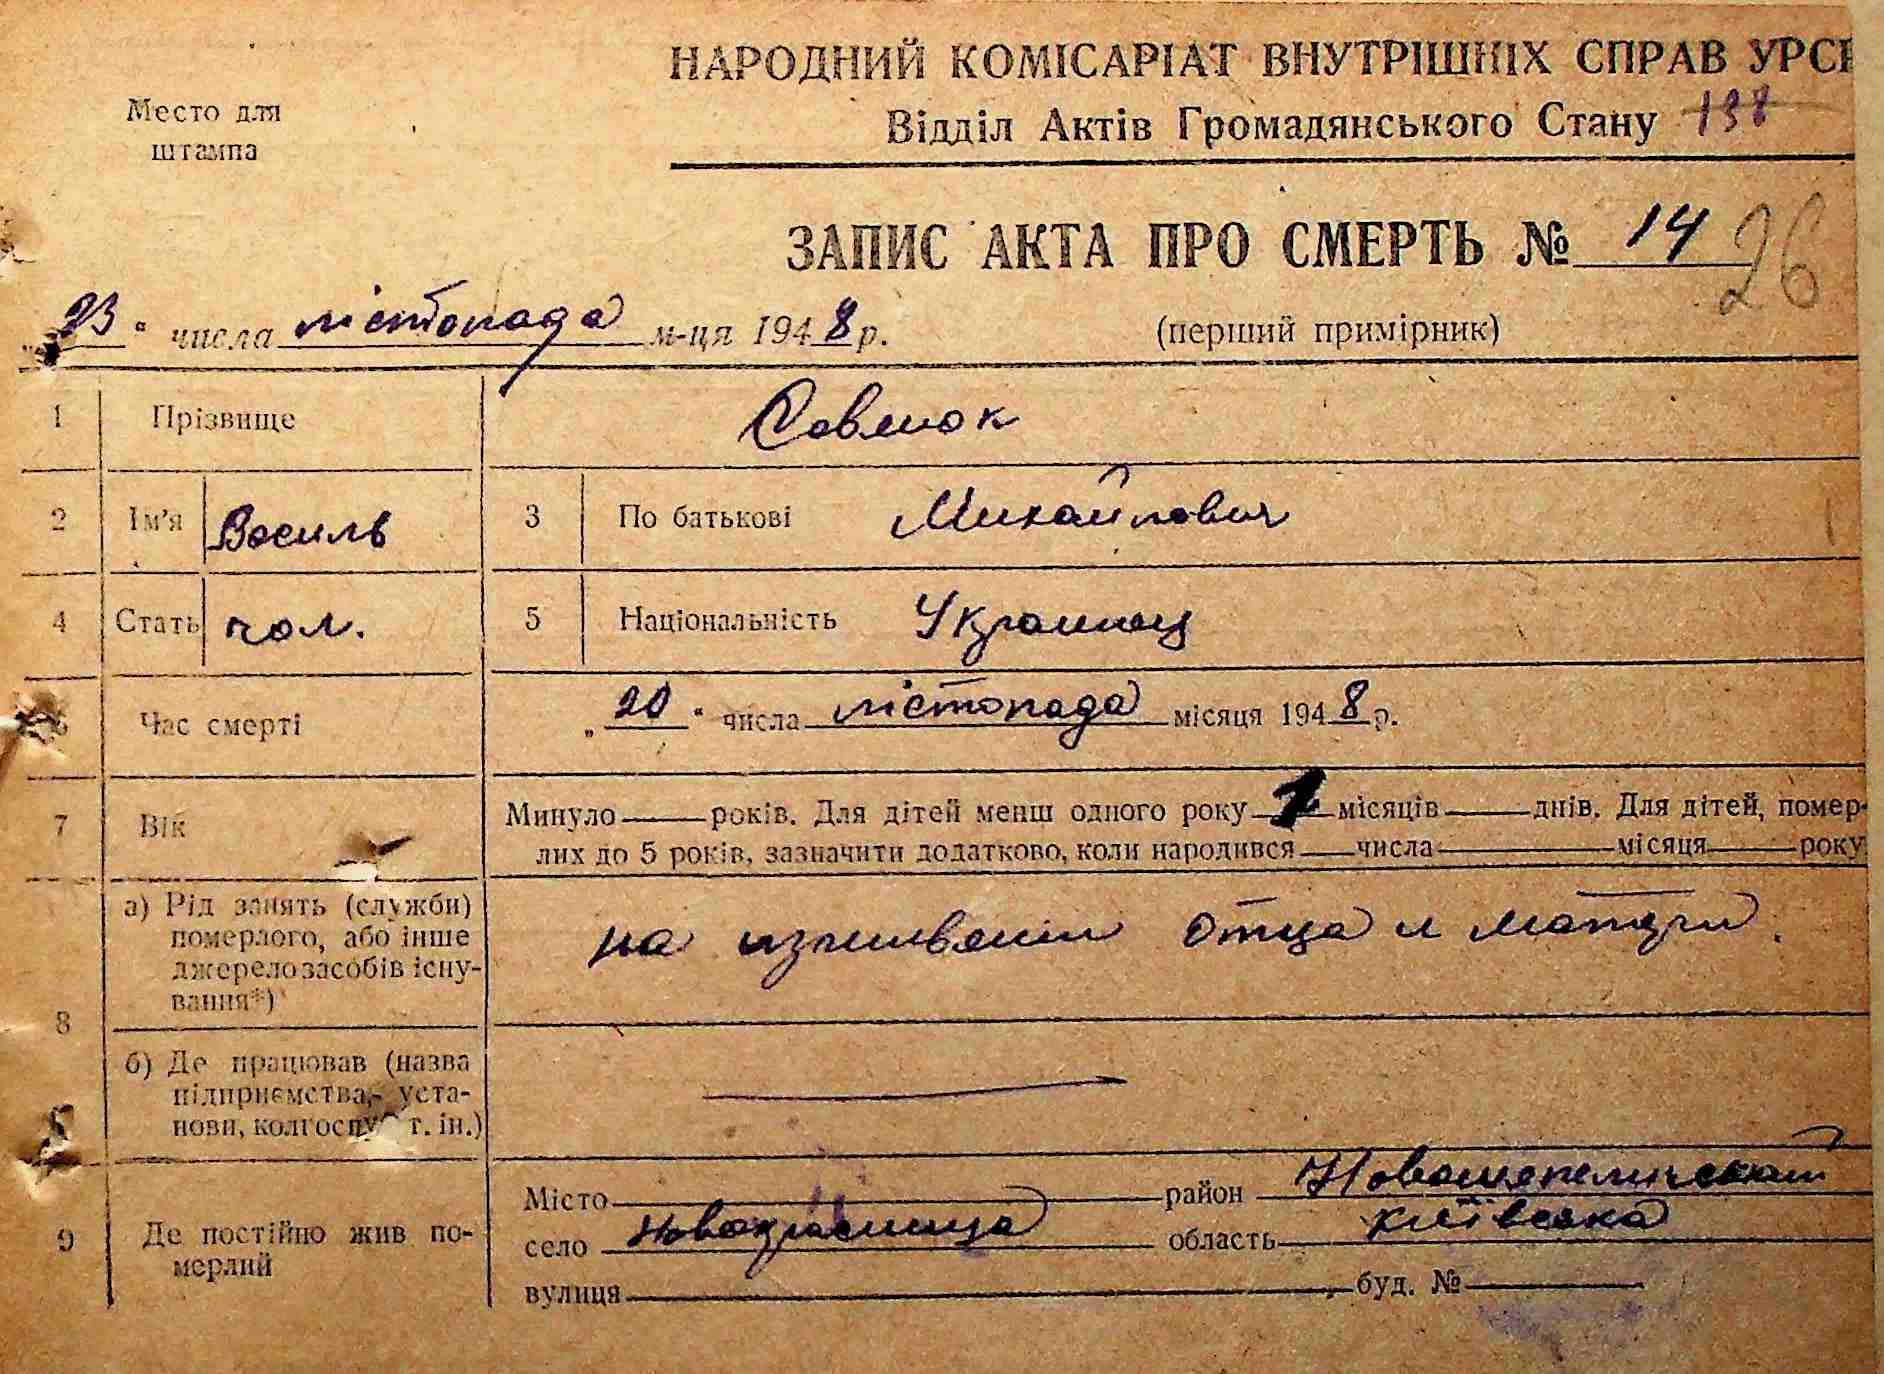 НАРОДНИЙ КОМІСАРІАТ ВНУТРІШНІХ СПРАВ УРСР
Место для штампа
Відділ Актів Громадянського Стану 138
ЗАПИС АКТА ПРО СМЕРТЬ № 14
26
„23“ числа лістопада м-ця 1948 р.
(перший примірник)
1 Прізвище Савлюк
2 Ім'я Василь 3 По батькові Михайлович
4 Стать чол. 5 Національність Украинец
6 Час смерті „20“ числа лістопада місяця 1948 р.
7 Вік Минуло — років. Для дітей менш одного року місяців — днів. Для дітей, помер-
лих до 5 років, зазначити додатково, коли народився — числа — місяця — року
8 а) Рід занять (служби)
померлого, або інше
джерело засобів існу-
вання*)
на изживении отца и матери.
б) Де працював (назва
підприємства, уста-
нови, колгоспу т. ін.)
—
9 Де постійно жив по-
мерлий
Місто — район Новошепеличский
село Новокрасниця область Київська
вулиця — буд. № —